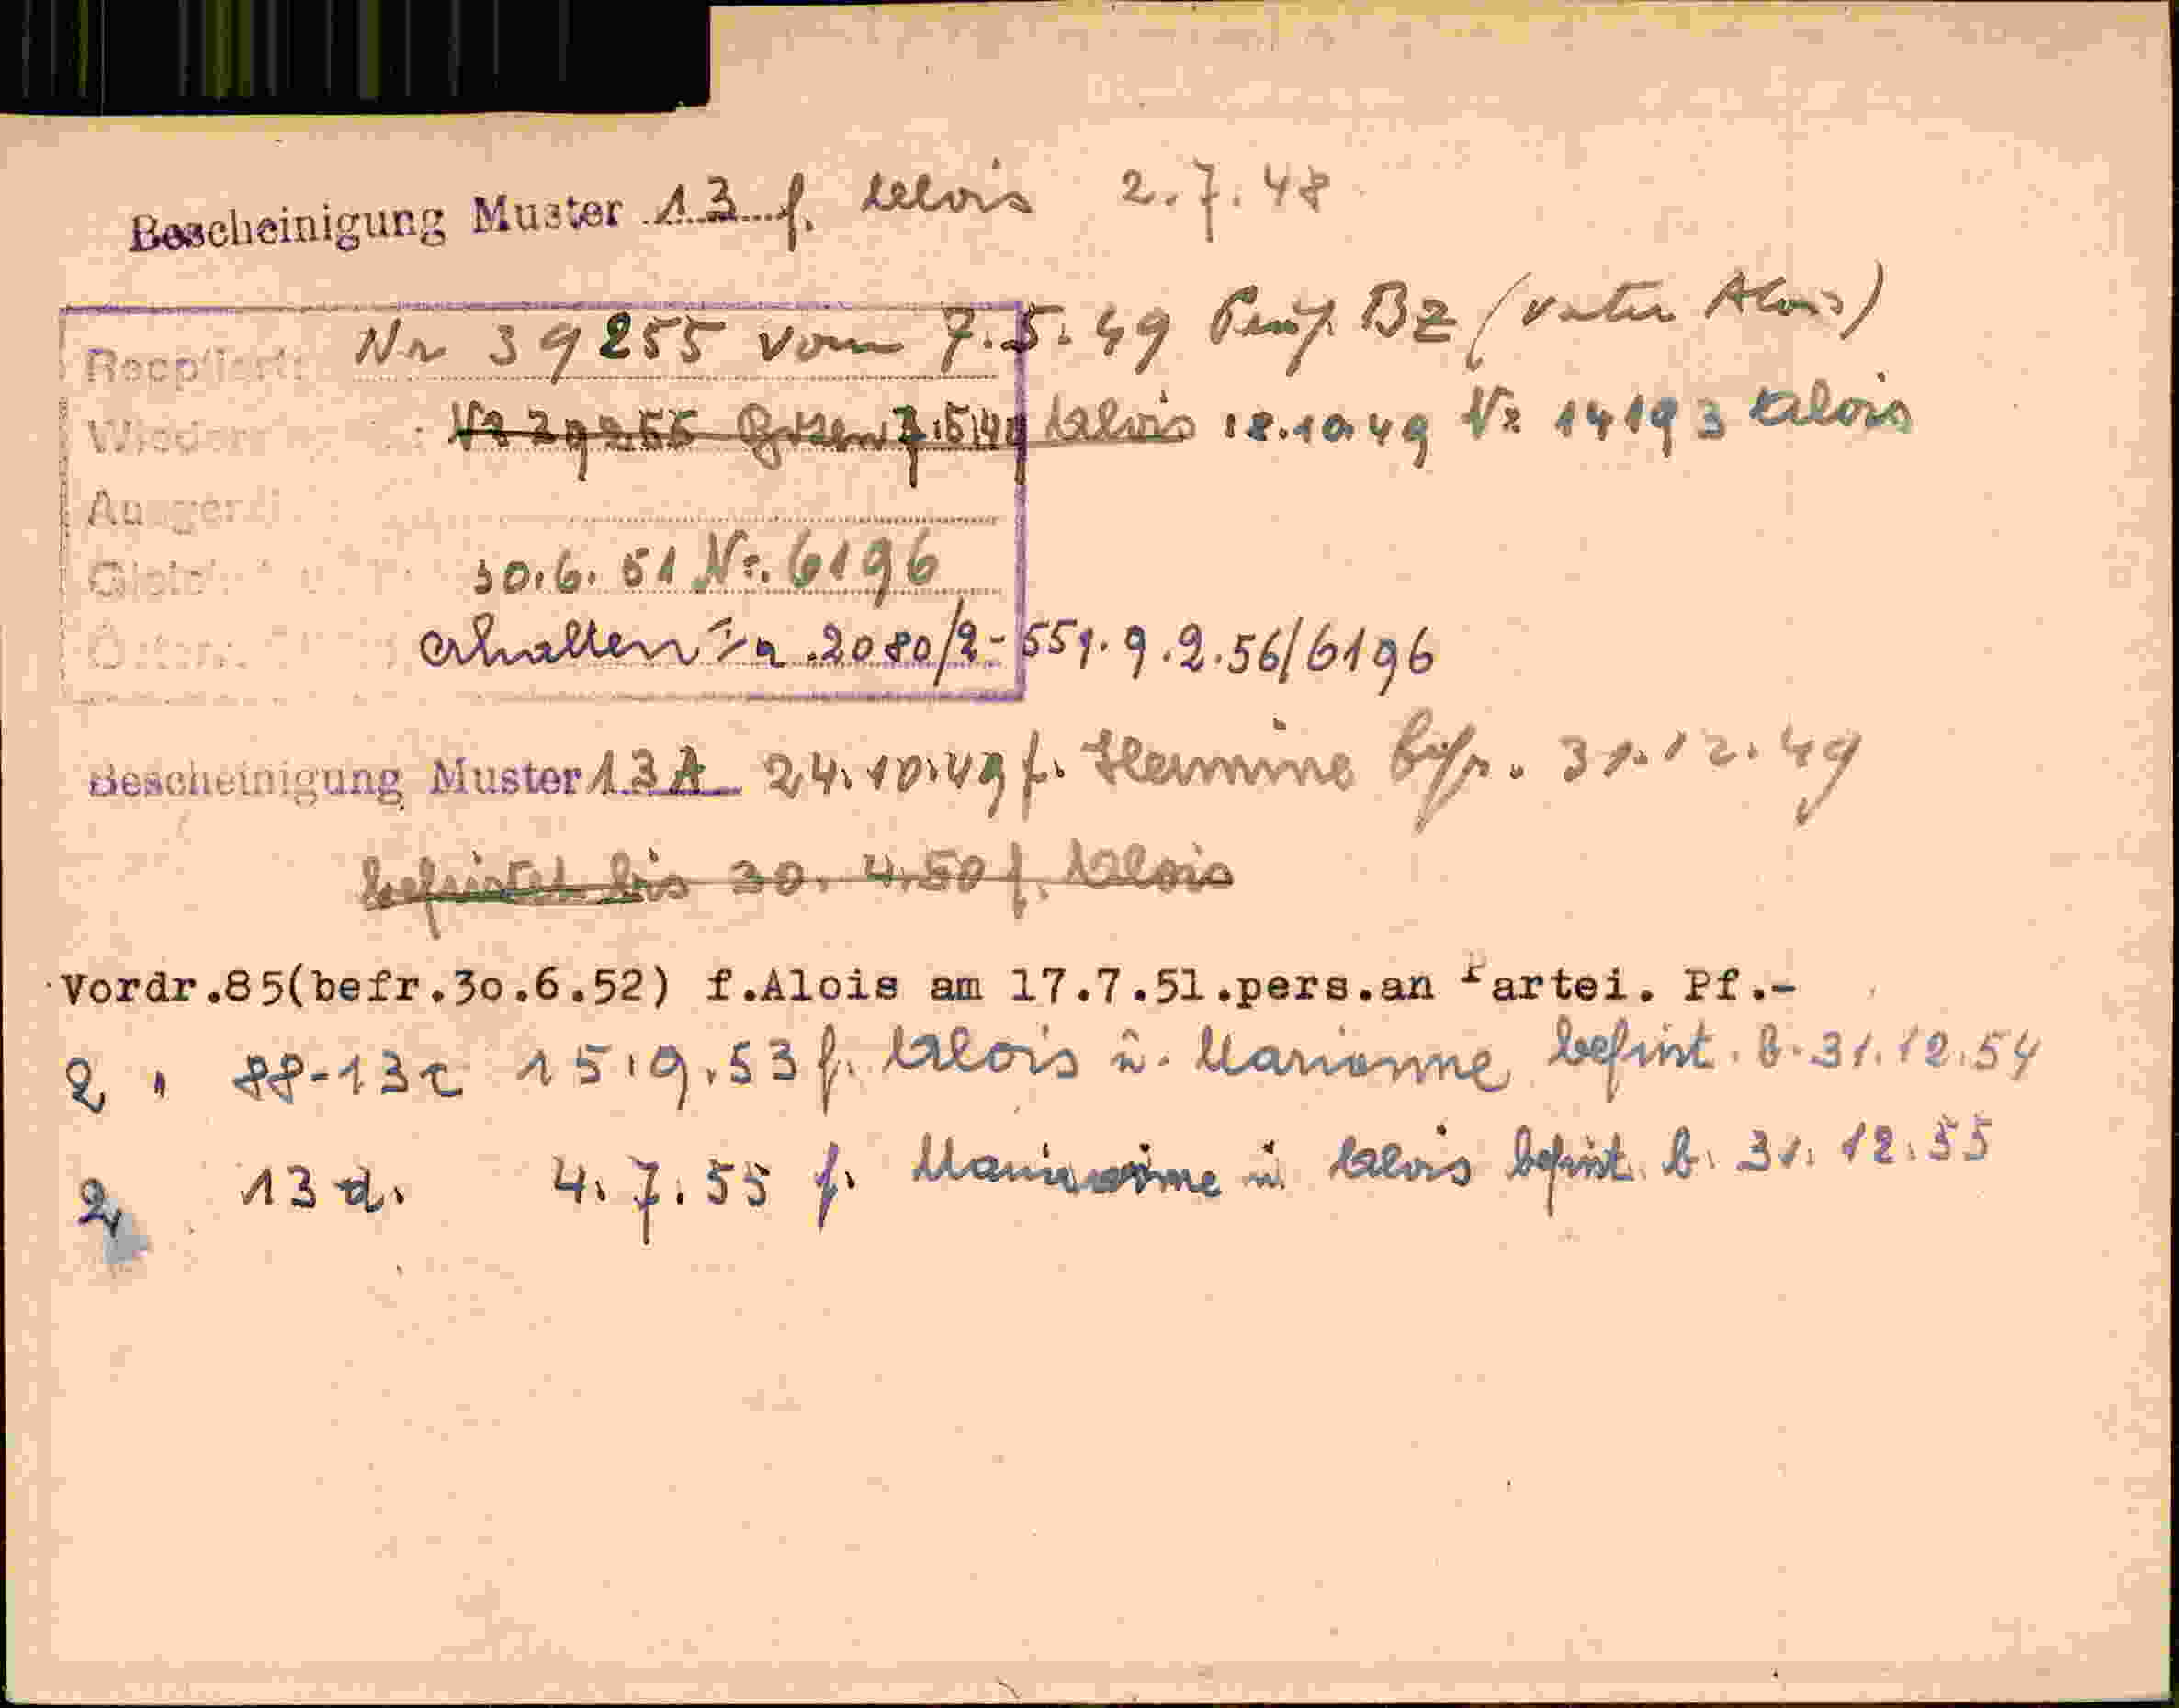 Bescheinigung Muster 13 f. Alois 2.7.48
Nr 39255 vom 7.5.49 Präf. BZ (Vater Alois)
Nr 39255 Bozen 7.5.49 Alois 18.10.49 Nr 14193 Alois
30.6.51 Nr. 6196
erhalten 2080/2-551. 9.2.56/6196
Bescheinigung Muster 13A 24.10.49 f. Hermine befr. 31.12.49
befristet bis 30. 4.50 f. Alois
Vordr.85(befr.3o.6.52) f.Alois am 17.7.51.pers.an Partei. Pf.-
2 " 88-13c 15.9.53 f. Alois u. Marianne befrist. b. 31.12.54
2, 13 d. 4.7.55 f. Marianne u. Alois befrist. b. 31.12.55